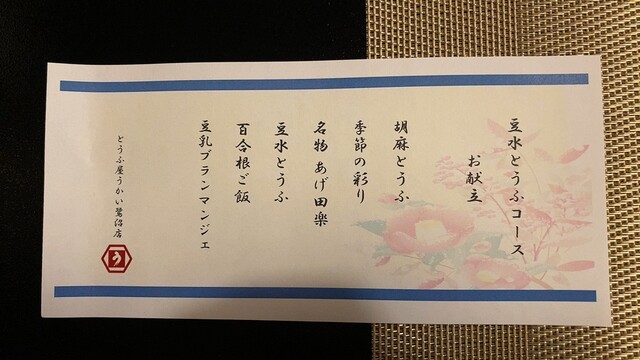 豆水とうふコース
お献立
胡麻とうふ
季節の彩り
名物 あげ田楽
豆水とうふ
百合根ご飯
豆乳ブランマンジェ
とうふ屋うかい鷺沼店
う